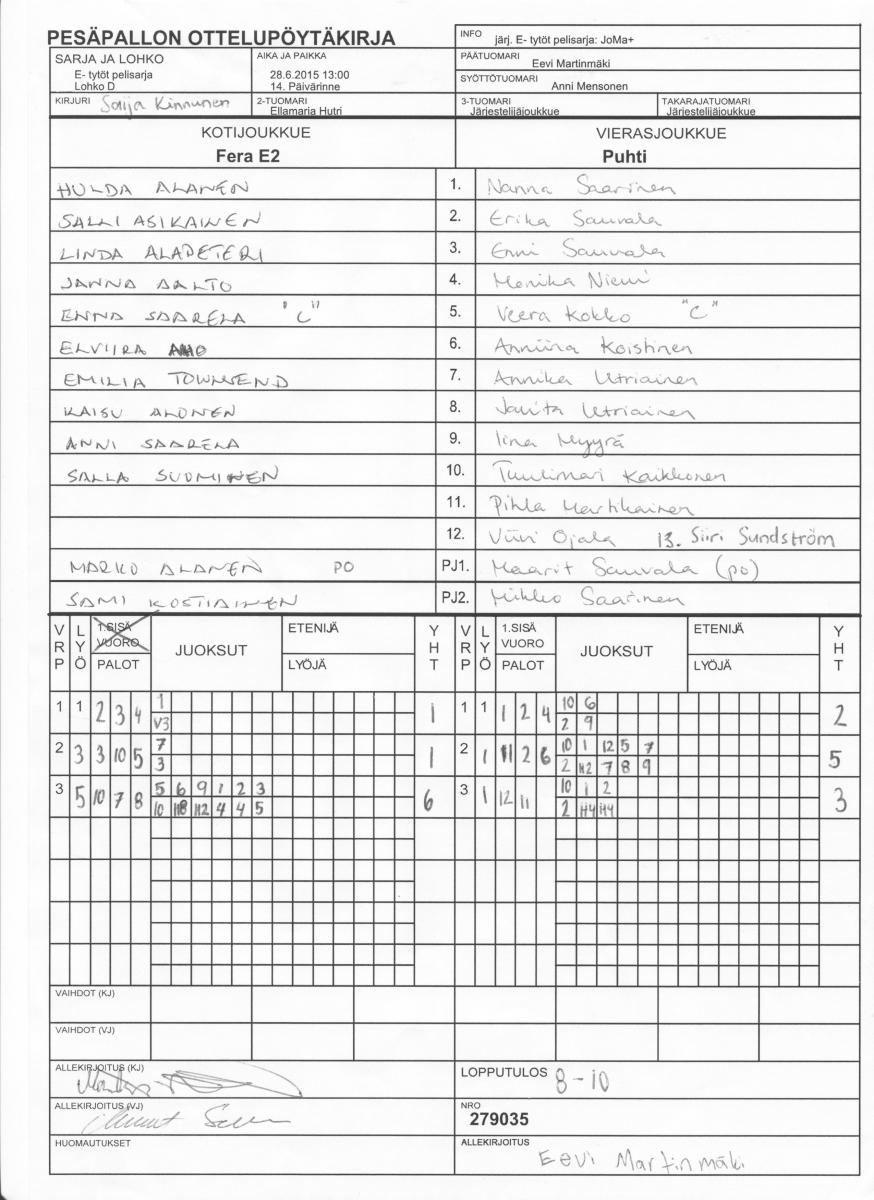 PESÄPALLON OTTELUPÖYTÄKIRJA
INFO järj. E- tytöt pelisarja: JoMa+
SARJA JA LOHKO
E- tytöt pelisarja
Lohko D
AIKA JA PAIKKA
28.6.2015 13:00
14. Päivärinne
PÄÄTUOMARI
Eevi Martinmäki
SYÖTTÖTUOMARI
Anni Mensonen
KIRJURI Saija Kinnunen
2-TUOMARI
Ellamaria Hutri
3-TUOMARI
Järjestelijäjoukkue
TAKARAJATUOMARI
Järjestelijäjoukkue
KOTIJOUKKUE
Fera E2
VIERASJOUKKUE
Puhti
HULDA ALANEN 1. Nanna Saarinen
SALLI ASIKAINEN 2. Erika Sauvala
LINDA ALAPETERI 3. Enni Sauvala
JANNA AALTO 4. Monika Niemi
ENNA SAARELA "C" 5. Veera Kokko "C"
ELVIIRA AHO 6. Anniina Koistinen
EMILIA TOWNSEND 7. Annika Utriainen
KAISU ALONEN 8. Janita Utriainen
ANNI SAARELA 9. Iina Myyrä
SALLA SUOMINEN 10. Tuulimari Kaikkonen
11. Pihla Martikainen
12. Viivi Ojala 13. Siiri Sundström
MARKO ALANEN PO PJ1. Maarit Sauvala (po)
SAMI KOSTIAINEN PJ2. Mikko Saarinen
VRP LYÖ 1.SISÄ VUORO PALOT JUOKSUT ETENIJÄ LYÖJÄ YHT VRP LYÖ 1.SISÄ VUORO PALOT JUOKSUT ETENIJÄ LYÖJÄ YHT
1 1 2 3 4 1 1 1 1 1 2 4 10 6 2
V3 2 9
2 3 3 10 5 7 1 2 1 11 2 6 10 1 12 5 7 5
3 2 H2 7 8 9
3 5 10 7 8 5 6 9 1 2 3 6 3 1 12 11 10 1 2 3
10 H8 H2 4 4 5 2 H4 H4
VAIHDOT (KJ)
VAIHDOT (VJ)
ALLEKIRJOITUS (KJ)
LOPPUTULOS 8-10
ALLEKIRJOITUS (VJ)
NRO
279035
HUOMAUTUKSET
ALLEKIRJOITUS
Eevi Martinmäki